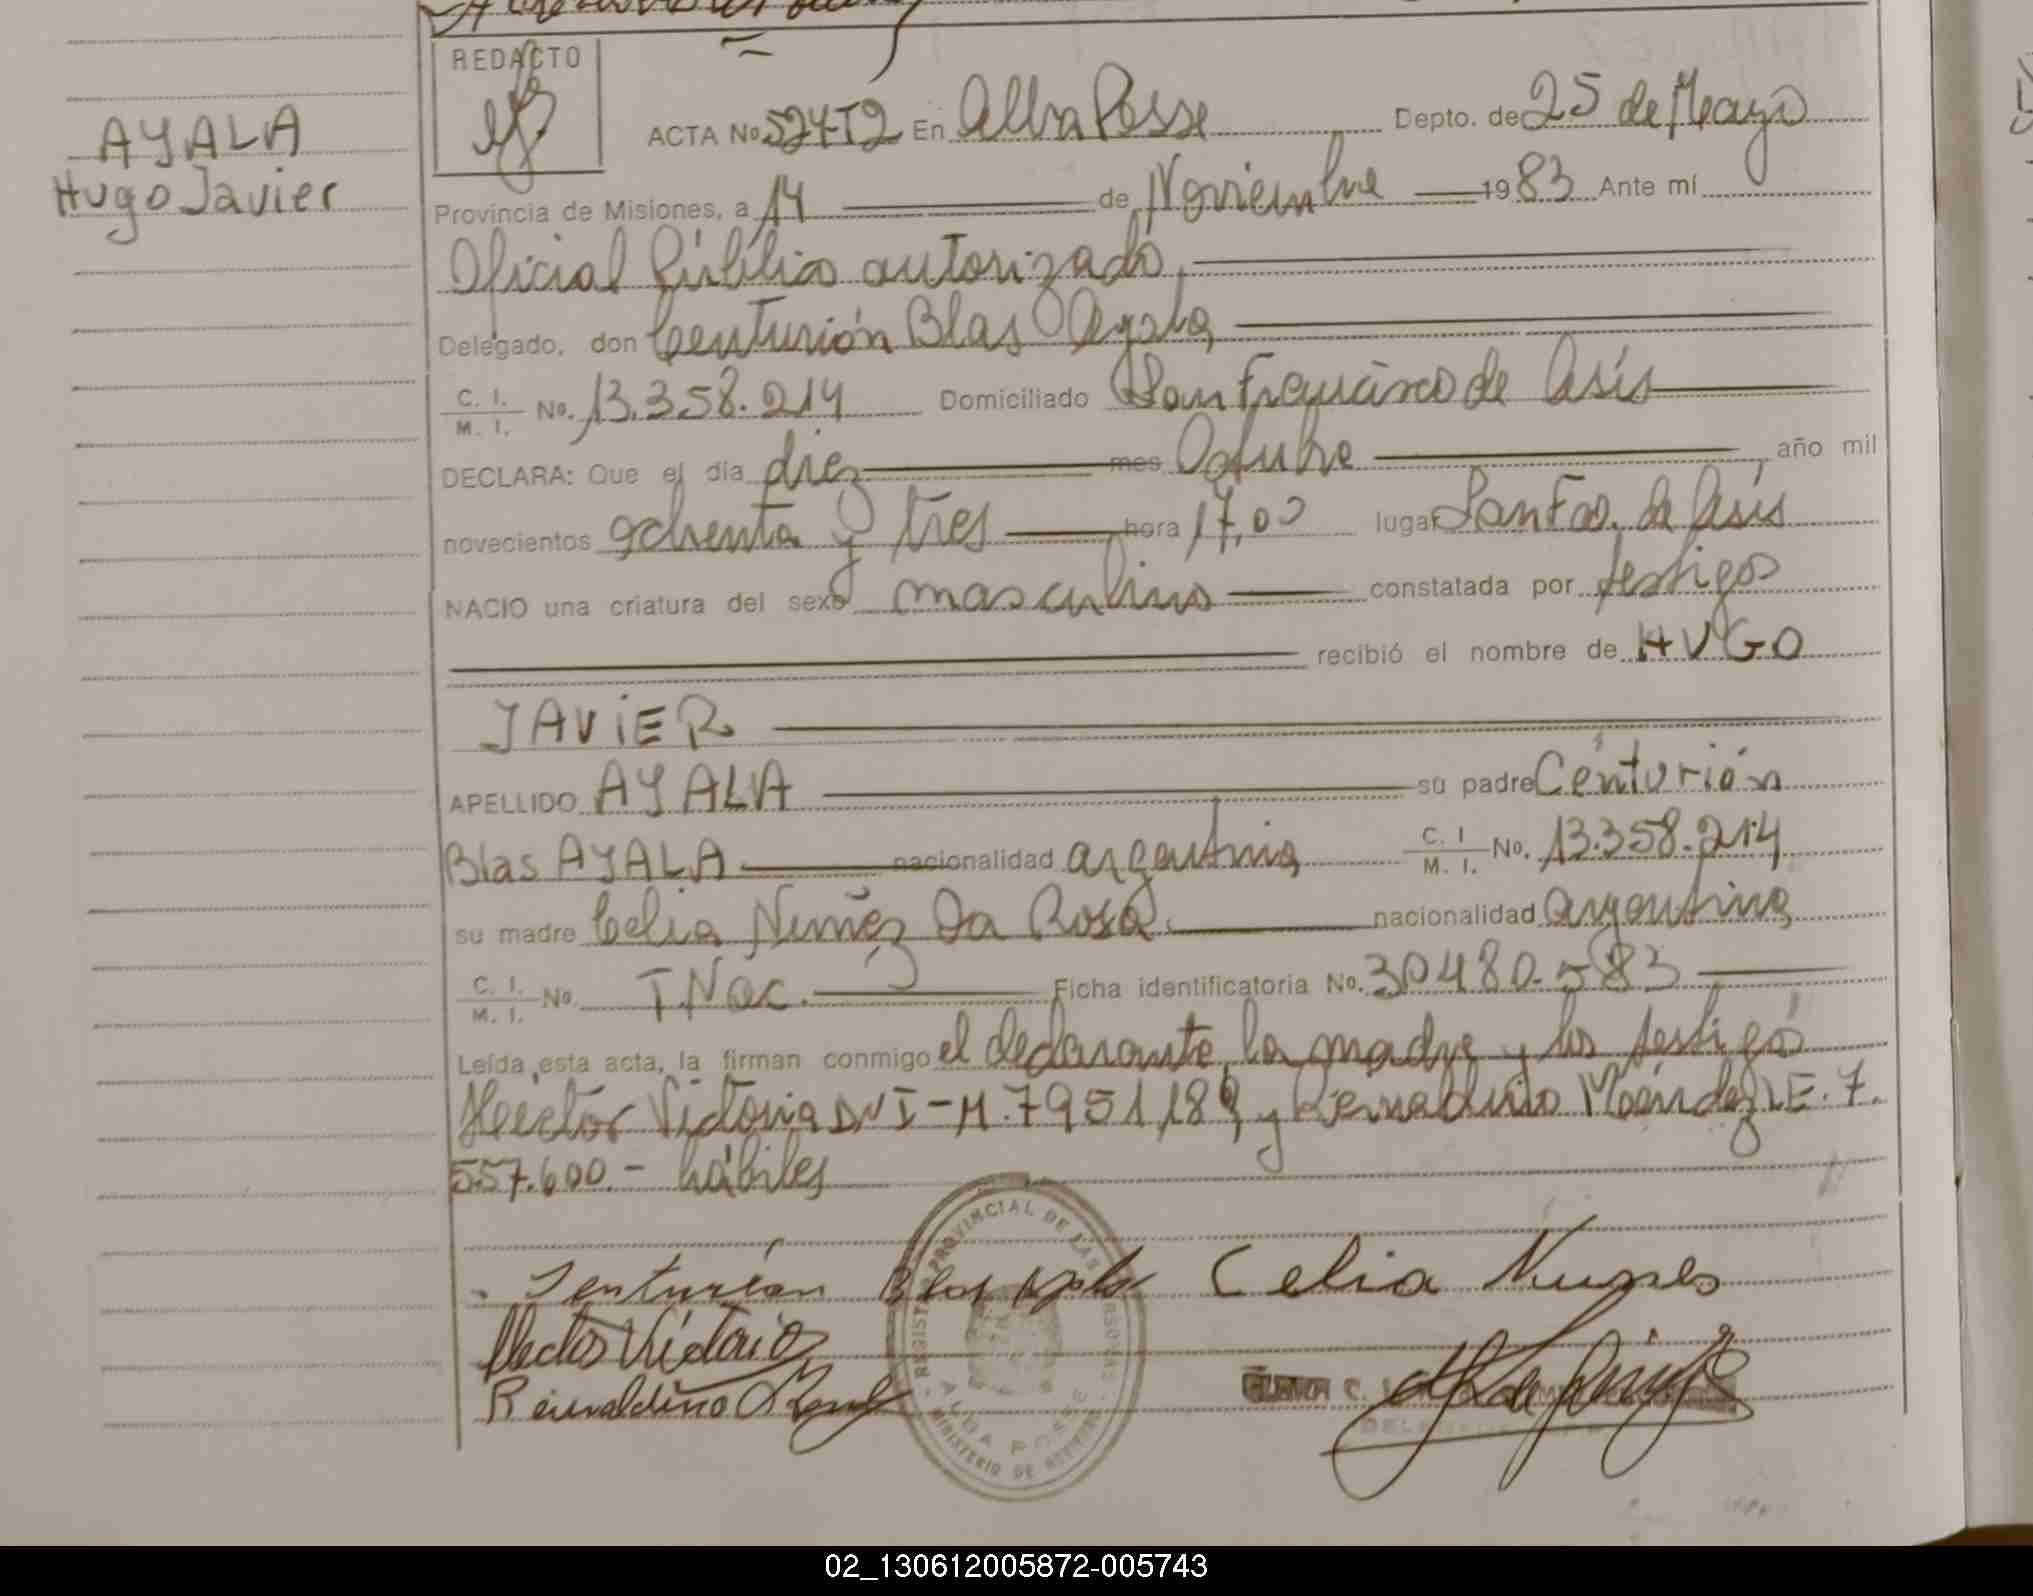 REDACTO
AYALA
Hugo Javier
ACTA No 524T2 En Alba Posse Depto. de 25 de Mayo
Provincia de Misiones, a 14 de Noviembre 1983 Ante mí
Oficial Público autorizado,
Delegado, don Centurión Blas Ayala,
C. I. M. I. No. 13.358.214 Domiciliado San Francisco de Asís
DECLARA: Que el día diez mes Octubre, año mil
novecientos ochenta y tres hora 17,00 lugar San Fco. de Asís
NACIO una criatura del sexo masculino constatada por testigos
recibió el nombre de HUGO
JAVIER
APELLIDO AYALA su padre Centurión
Blas AYALA nacionalidad argentina C. I M. I. No. 13.358.214
su madre Celia Nuñez Da Rosa. nacionalidad argentina
C. I. M. I. No. T.Nac. Ficha identificatoria No. 30480.583
Leída esta acta, la firman conmigo el declarante, la madre y los testigos
Hector Victoria DNI-M.7951,189 y Reinaldino Méndez LE.7.
557.600.- hábiles
Centurion Blas Ayala Celia Nunes
Hector Victorio
Reinaldino
REGISTRO PROVINCIAL DE LAS PERSONAS
ALBA POSSE
MINISTERIO DE
02_130612005872-005743